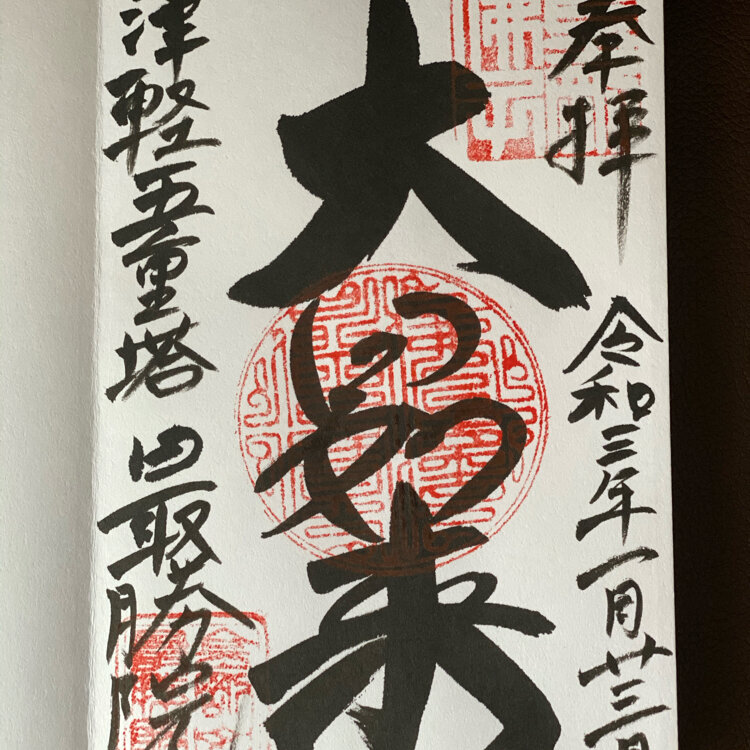 奉拝
令和三年一月廿三日
大日如来
津軽五重塔 最勝院